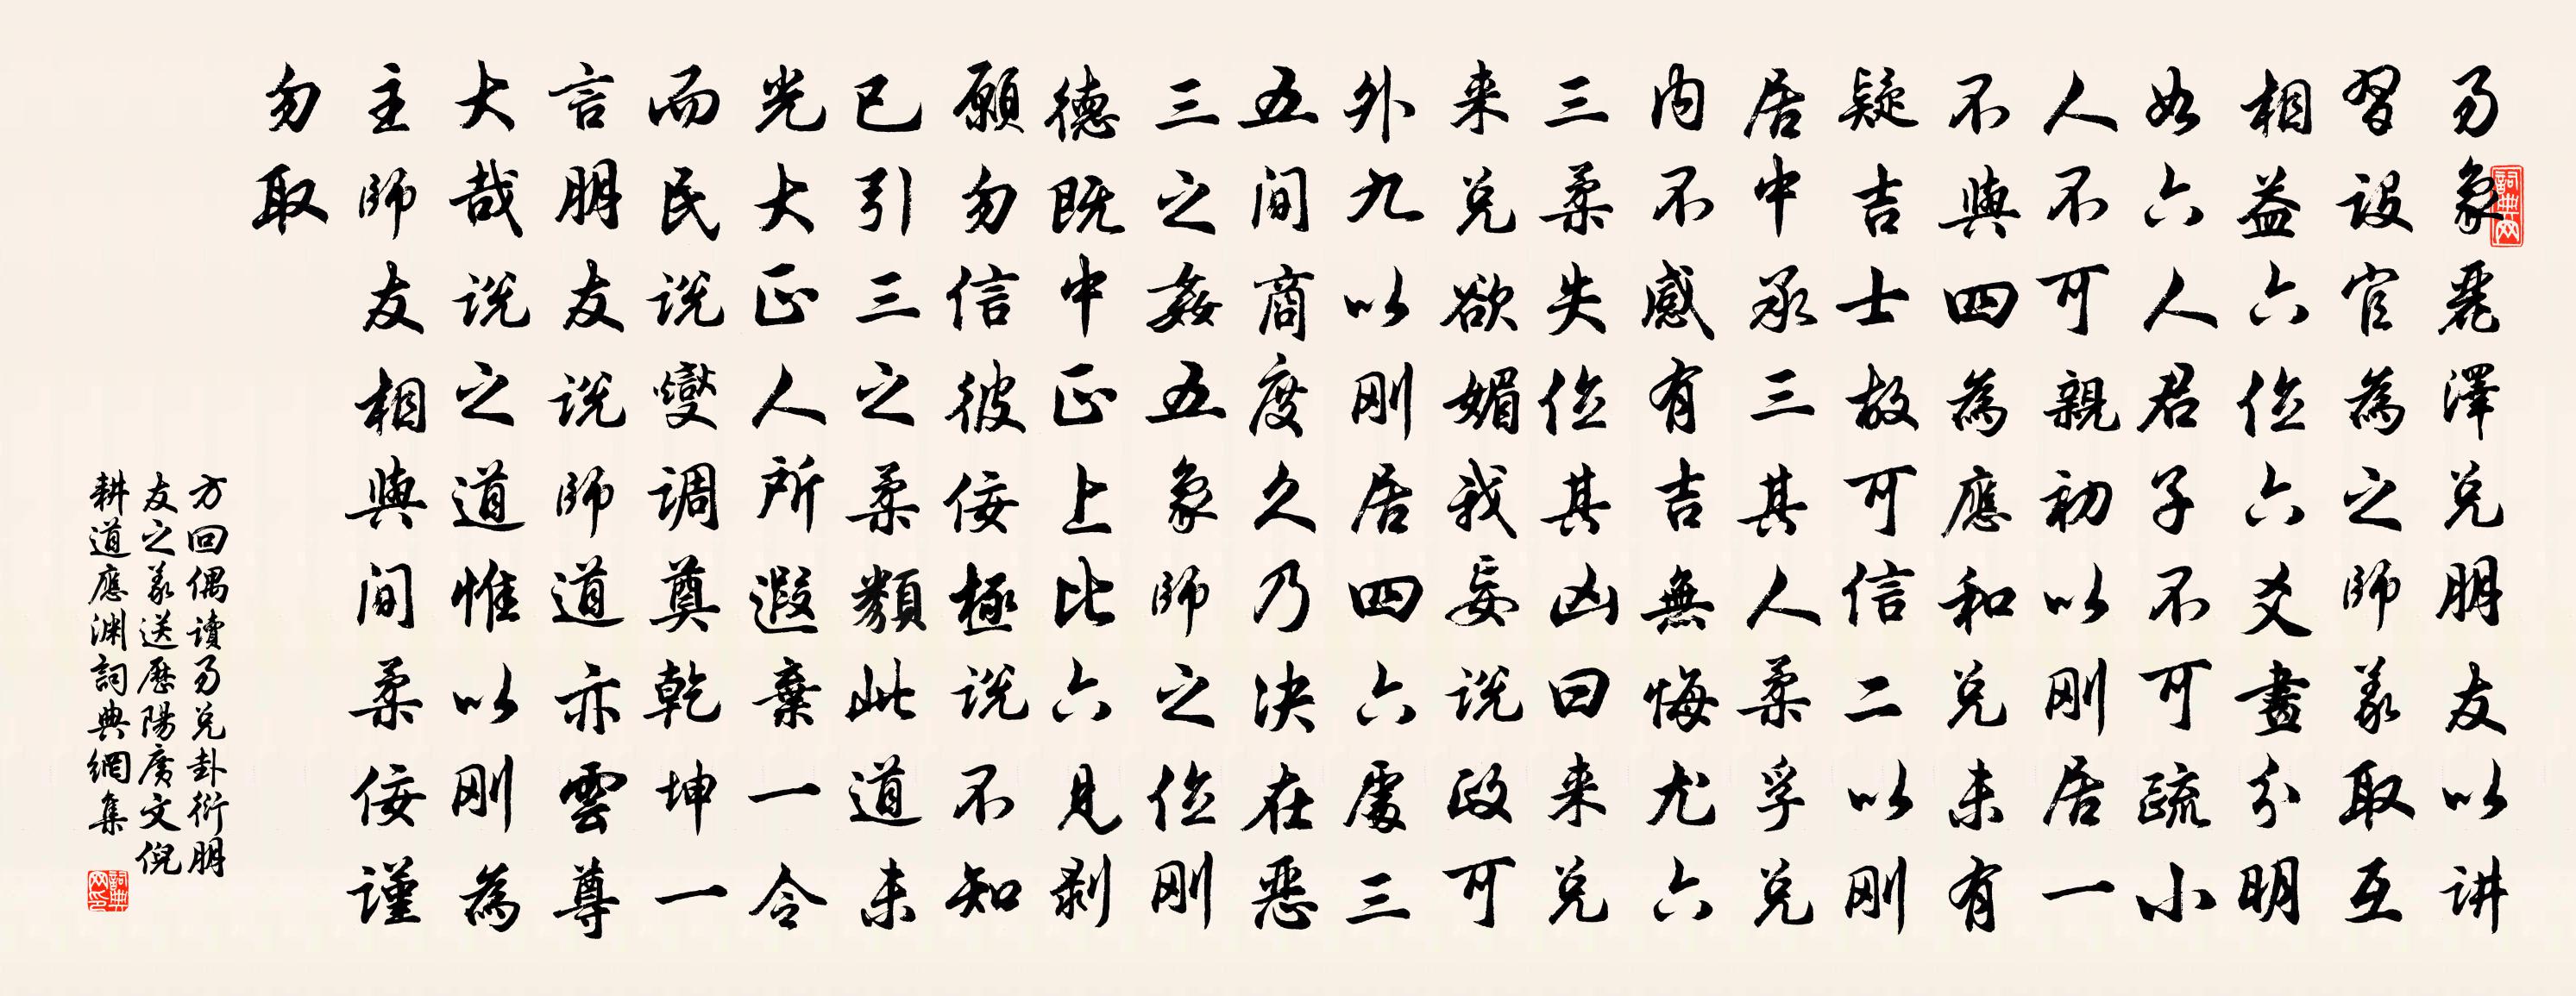 易象麗澤兑朋友以讲
習設官為之師義取互
相益六位六爻畫分明
如六人君子不可疏小
人不可親初以刚居一
不與四為應和兑未有
疑吉士故可信二以刚
居中承三其人柔孚兑
内不感有吉無悔尤六
三柔失位其凶曰来兑
来兑欲媚我妄说政可
外九以刚居四六處三
五间商度久乃决在恶
三之姦五象師之位刚
德既中正上比六見剥
願勿信彼佞極说不知
已引三之柔類此道未
光大正人所遐棄一令
而民说變调奠乾坤一
言朋友说師道亦雲尊
大哉说之道惟以刚為
主師友相與间柔佞謹
勿取
方回偶读易兑卦衍朋
友之義送歷陽廣文倪
耕道應渊詞典網集
詞典网
詞典网印